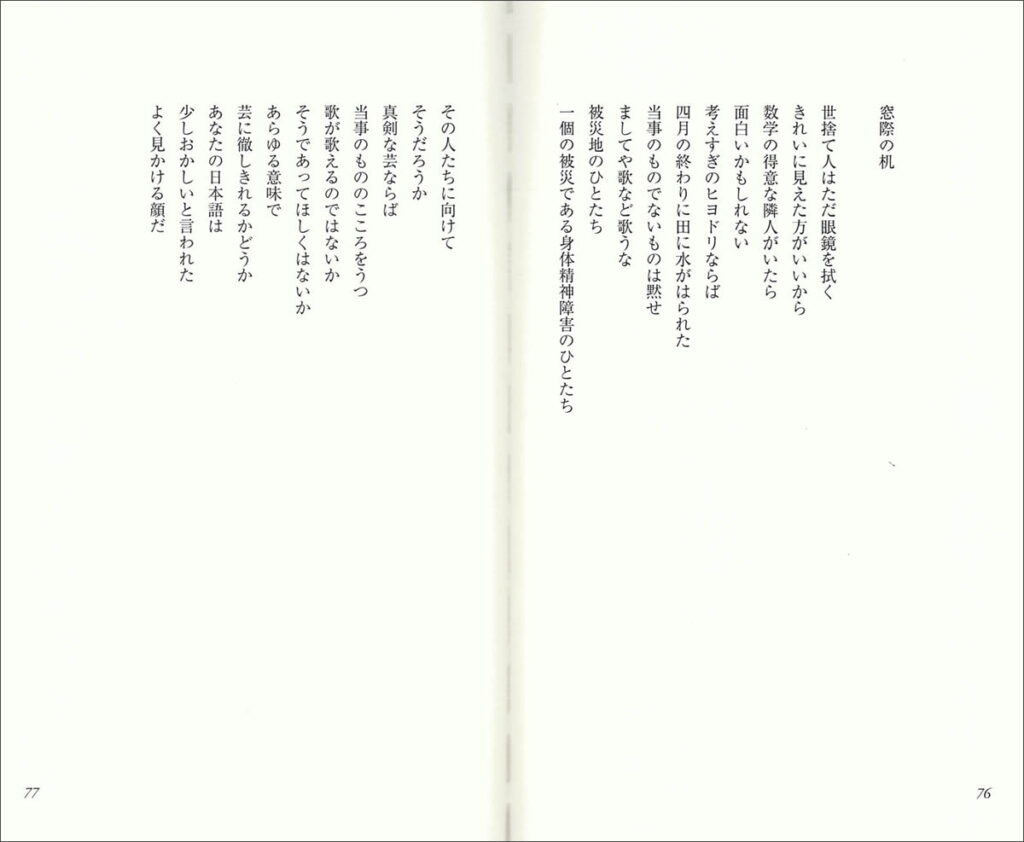 窓際の机
世捨て人はただ眼鏡を拭く
きれいに見えた方がいいから
数学の得意な隣人がいたら
面白いかもしれない
考えすぎのヒヨドリならば
四月の終わりに田に水がはられた
当事のものでないものは黙せ
ましてや歌など歌うな
被災地のひとたち
一個の被災である身体精神障害のひとたち
76
その人たちに向けて
そうだろうか
真剣な芸ならば
当事のもののこころをうつ
歌が歌えるのではないか
そうであってほしくはないか
あらゆる意味で
芸に徹しきれるかどうか
あなたの日本語は
少しおかしいと言われた
よく見かける顔だ
77